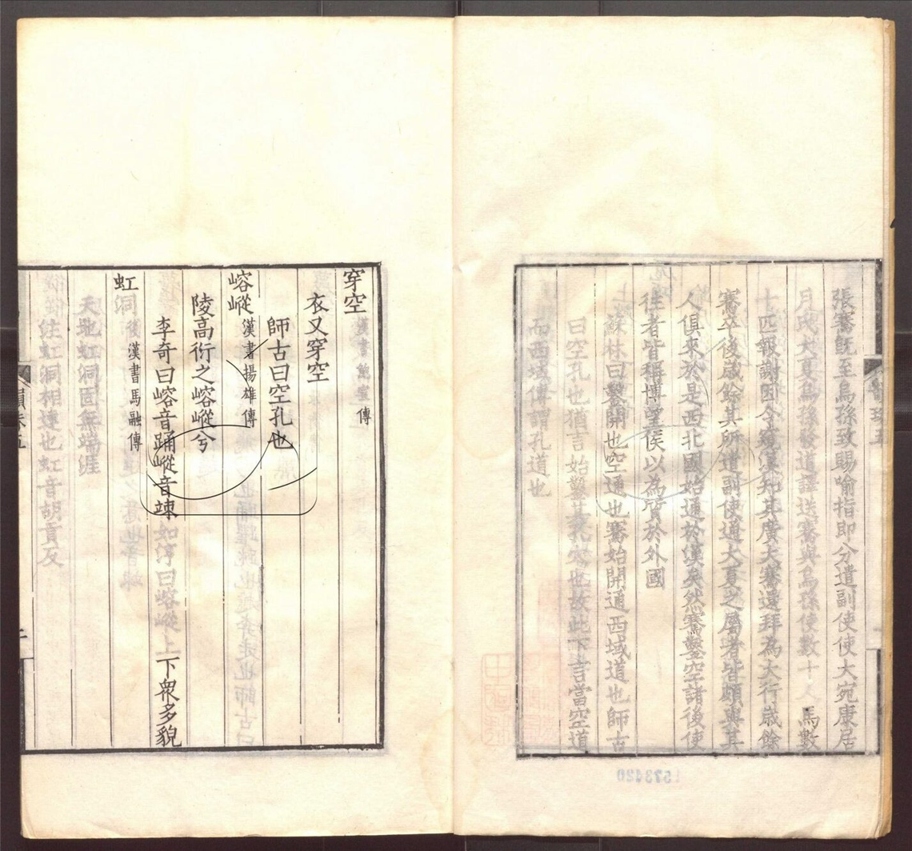 張騫既至烏孫致賜喻指即分遣副使使大宛康居
月氏大夏烏孫道譯送騫與烏孫使數十人馬數
十匹報謝因令窺漢知其廣大騫還拜為大行歲餘
騫卒後歲餘其所遣副使通大夏之屬者皆頗與其
人俱來於是西北國始通於漢矣然騫鑿空諸後使
往者皆稱博望侯以為質於外國
蘇林曰鑿開也空通也騫始開通西域道也師古
曰空孔也猶言始鑿其孔穴也故此下言當空道
而西域傳謂孔道也
穿空 漢書鮑宣傳
衣又穿空
師古曰空孔也
嵱嵷 漢書揚雄傳
陵高衍之嵱嵷兮
李奇曰嵱音踊嵷音竦如淳曰嵱嵷上下衆多貌
虹洞 後漢書馬融傳
天地虹洞固無端涯
注虹洞相連也虹音胡貢反